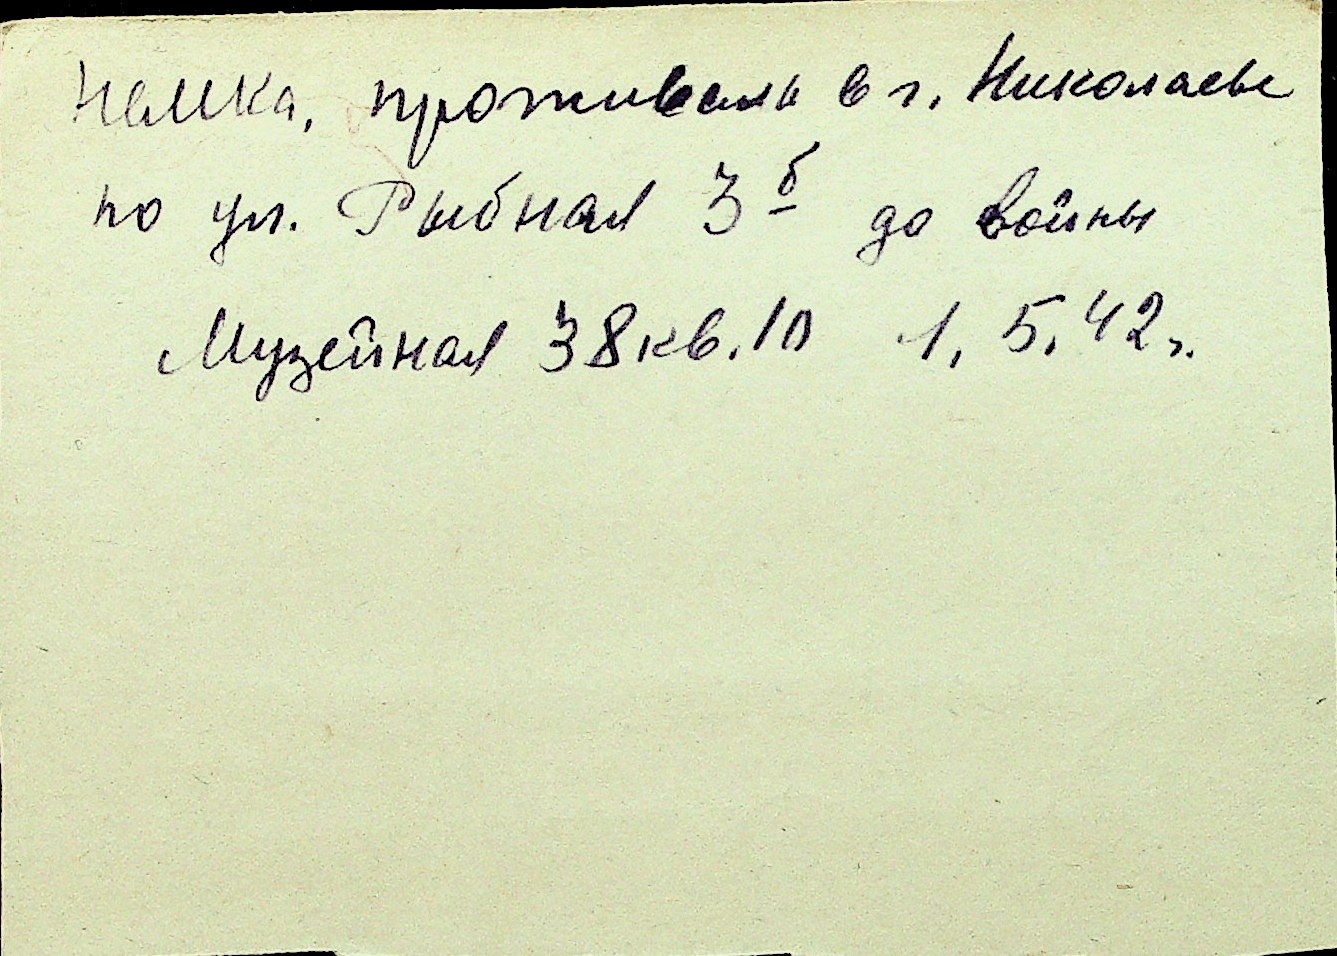 немка, проживала в г. Николаеве
по ул. Рыбная 3б до войны
Музейная 38 кв. 10 1, 5, 42 г.